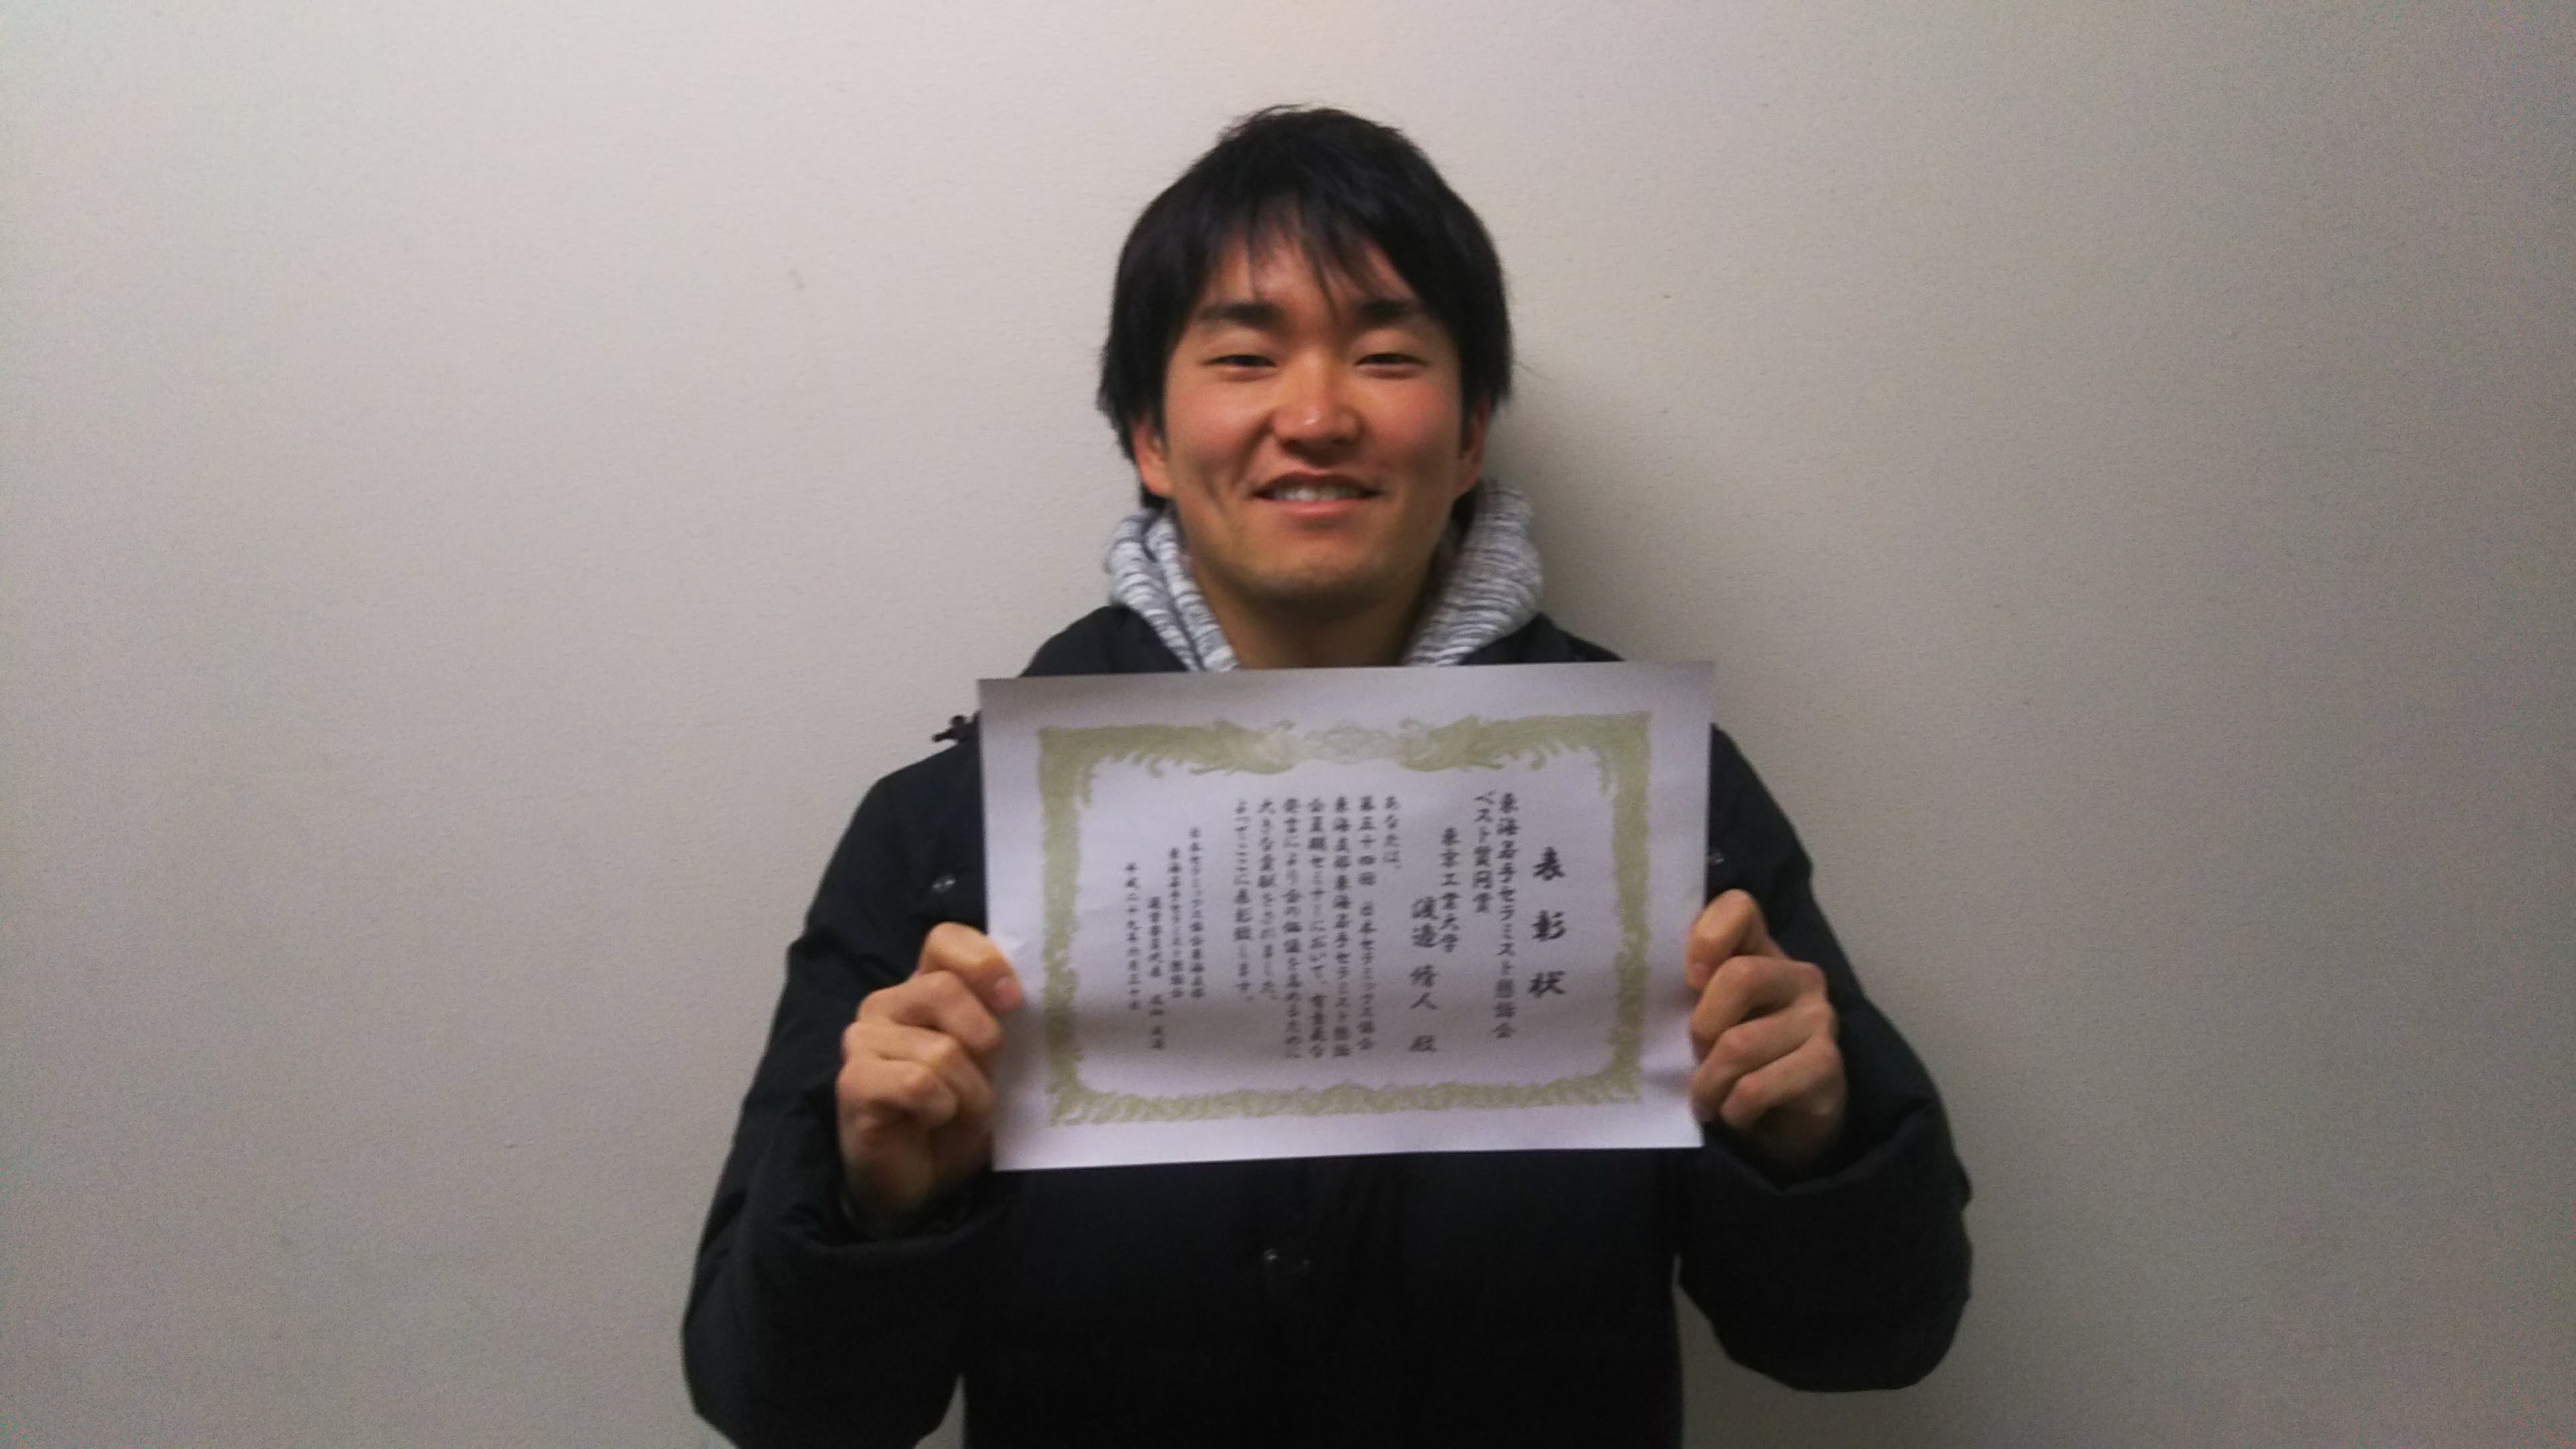 表彰状
東海若手セラミスト懇話会
ベスト質問賞
東京工業大学
渡邉 脩人 殿
あなたは、
第五十四回 日本セラミックス協会
東海支部東海若手セラミスト懇話
会夏期セミナーにおいて、有意義な
発言により会の価値を高めるために
大きな貢献をされました。
よってここに表彰致します。
日本セラミックス協会東海支部
東海若手セラミスト懇話会
運営委員代表
平成二十九年六月三十日